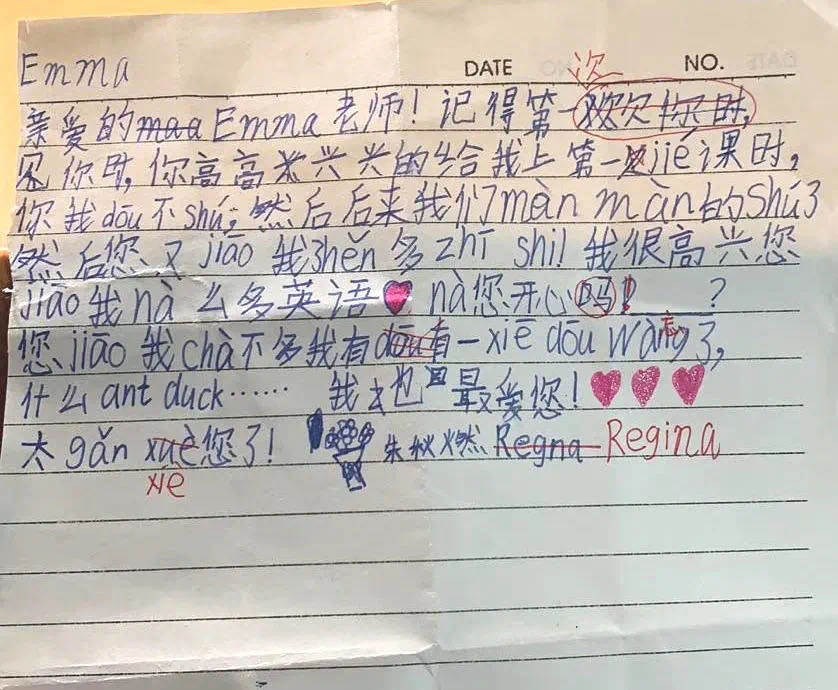 Emma DATE 次 NO.
亲爱的maa Emma老师！记得第一次你时,
见你时,你高高兴兴的给我上第一jié课时,
你我dōu不shú;然后后来我们màn màn的shú了
然后您又jiāo我zhěn多zhī shi!我很高兴您
jiāo我nà么多英语 nà您开心吗！？
您jiāo我chà不多我有dōu有一xiē dōu wàng了, 忘
什么ant duck…… 我也最爱您！
太gǎn xuè您了！ 朱秋燃 Regna Regina
xie